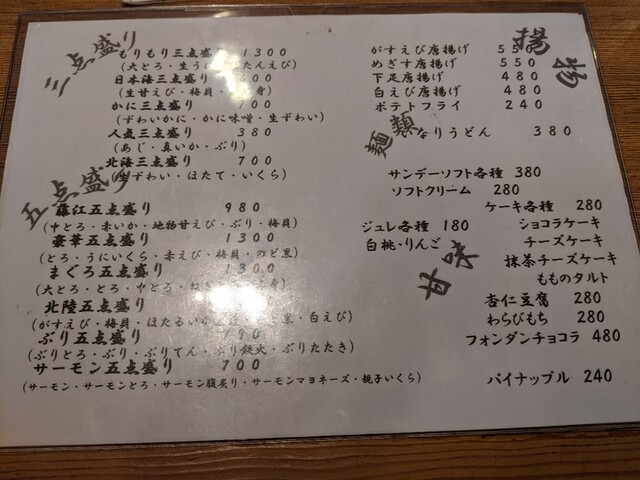 三点盛り
もりもり三点盛り 1300
(大とろ・生うに たんえび)
日本海三点盛り 600
(生甘えび・梅貝 身)
かに三点盛り 700
(ずわいかに・かに味噌・生ずわい)
人気三点盛り 380
(あじ・真いか・ぶり)
北海三点盛り 700
(生ずわい・ほたて・いくら)
五点盛り
藤江五点盛り 980
(中とろ・赤いか・地物甘えび・ぶり・梅貝)
豪華五点盛り 1300
(とろ・うにいくら・赤えび・梅貝・のど黒)
まぐろ五点盛り 1300
(大とろ・とろ・中とろ・ 身)
北陸五点盛り
(がすえび・梅貝・ほたるいか 黒・白えび)
ぶり五点盛り 90
(ぶりとろ・ぶり・ぶりてん・ぶり鉄火・ぶりたたき)
サーモン五点盛り 700
(サーモン・サーモンとろ・サーモン腹炙り・サーモンマヨネーズ・親子いくら)
揚物
がすえび唐揚げ 550
めぎす唐揚げ 550
下足唐揚げ 480
白えび唐揚げ 480
ポテトフライ 240
麺類
いなりうどん 380
甘味
サンデーソフト各種 380
ソフトクリーム 280
ケーキ各種 280
ショコラケーキ
チーズケーキ
抹茶チーズケーキ
もものタルト
ジュレ各種 180
白桃・りんご
杏仁豆腐 280
わらびもち 280
フォンダンチョコラ 480
パイナップル 240